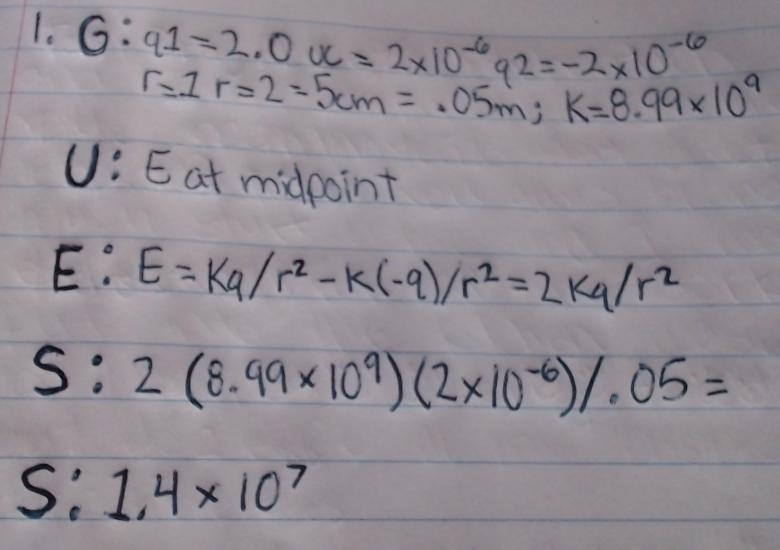 1. G: q1=2.0 uc = 2x10⁻⁶ q2=-2x10⁻⁶
r=1 r=2=5cm = .05m; K=8.99x10⁹
U: E at midpoint
E: E=Kq/r²-K(-q)/r²=2Kq/r²
S: 2 (8.99x10⁹)(2x10⁻⁶)/.05=
S: 1.4 x 10⁷